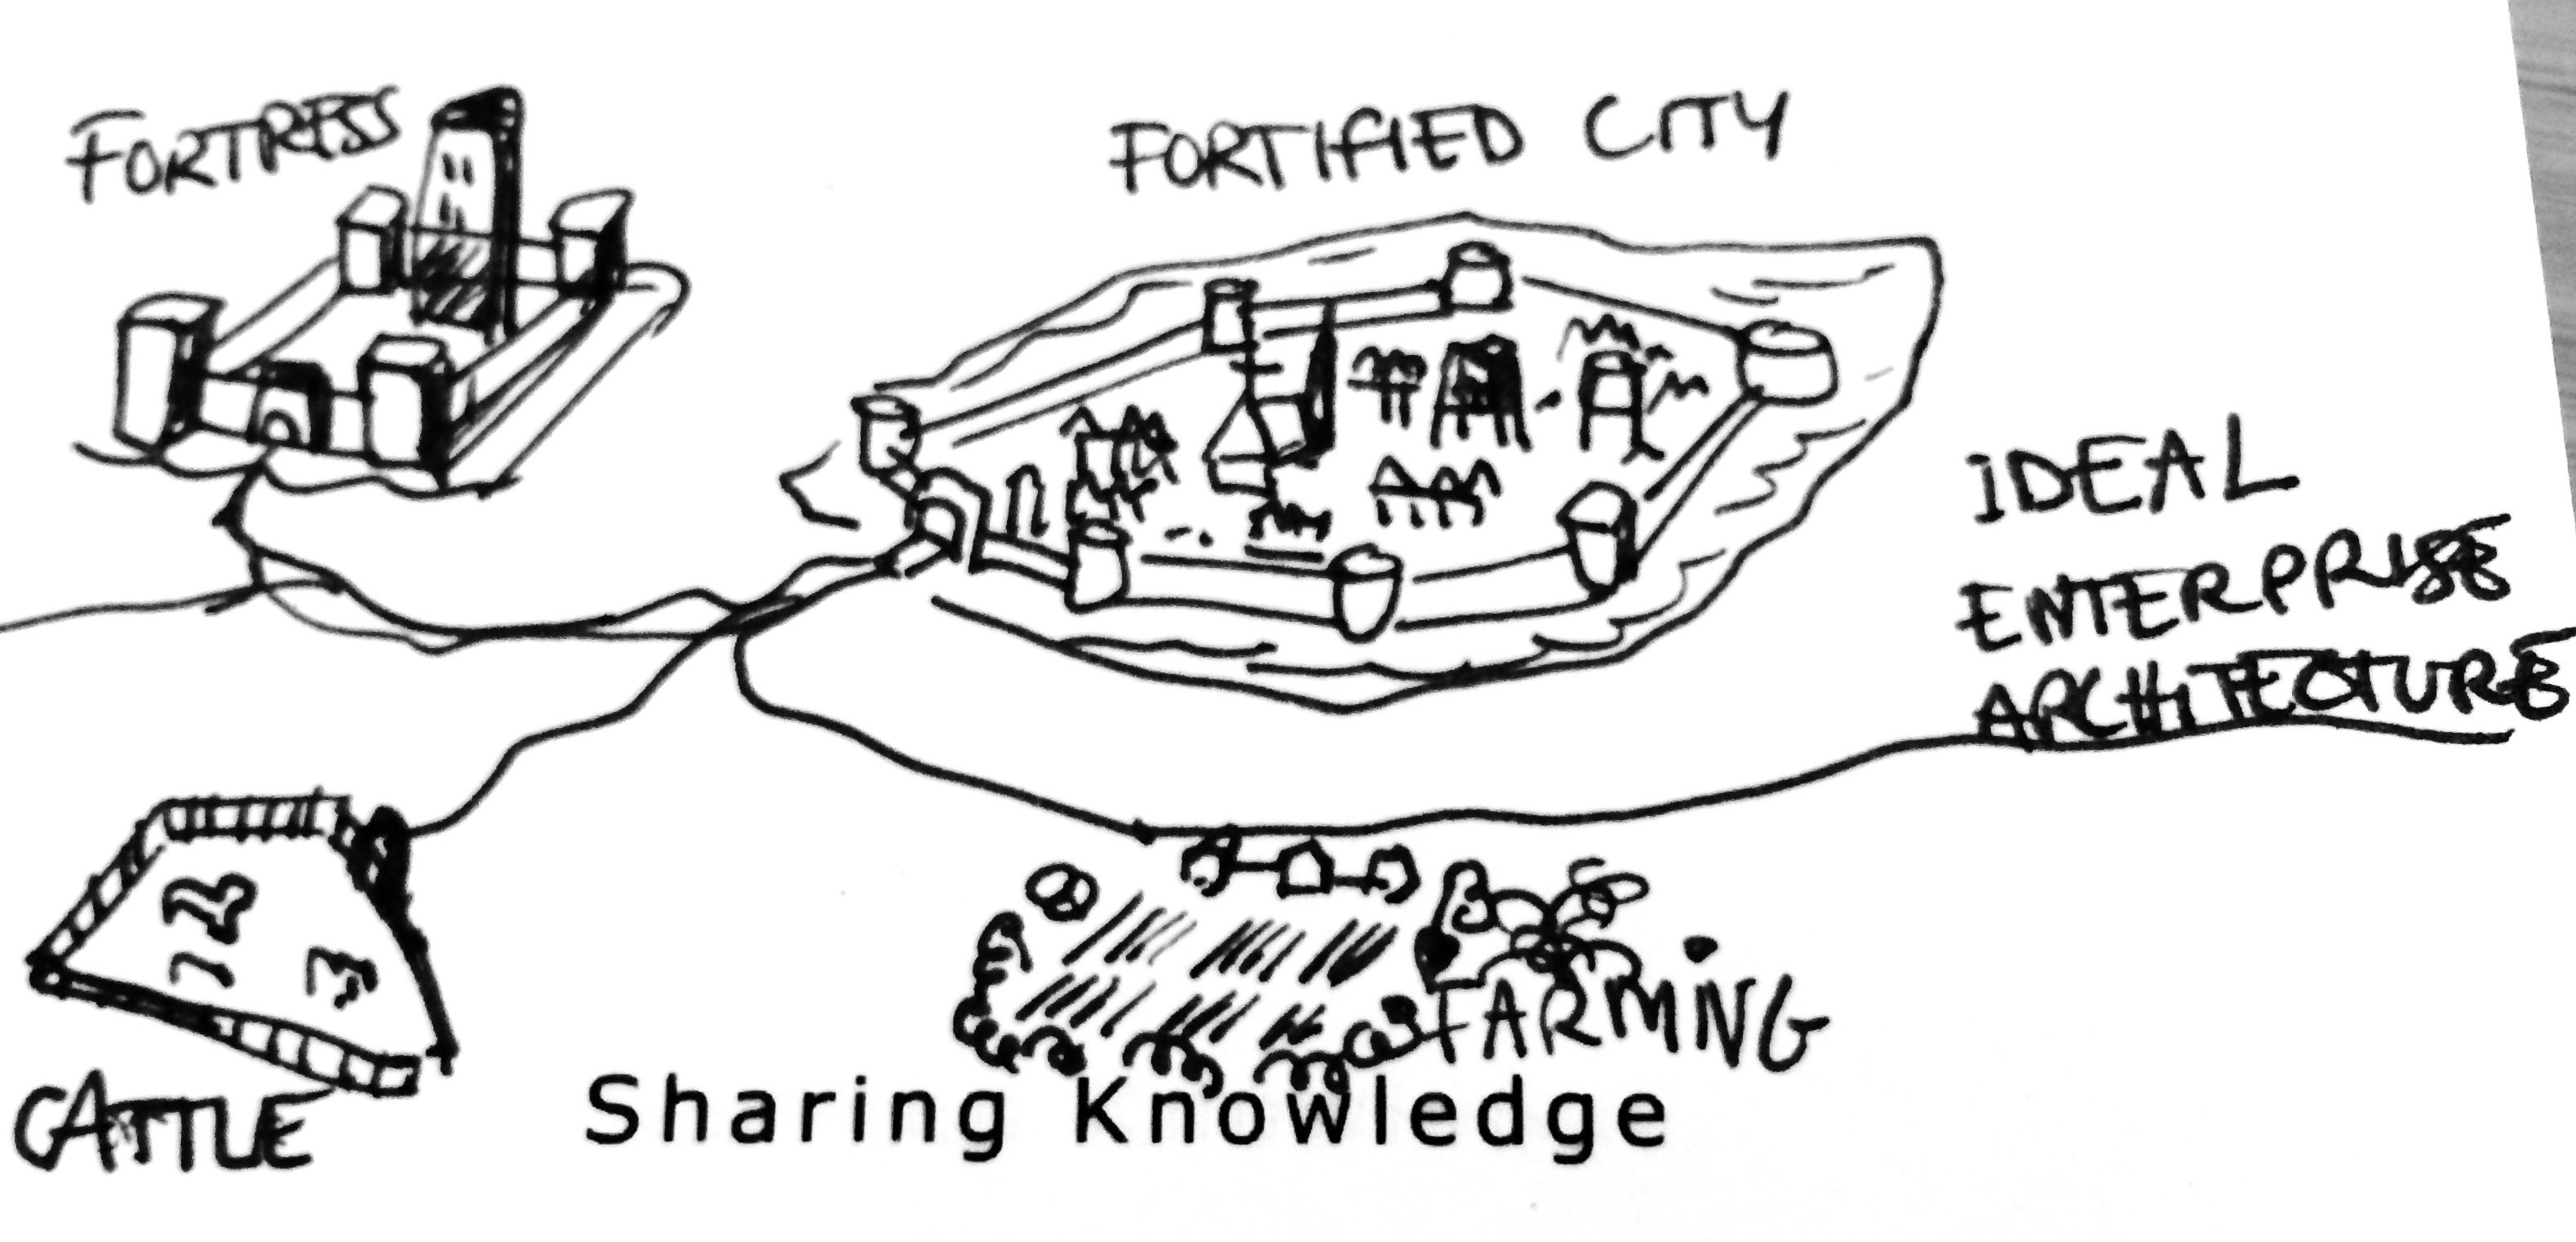 FORTRESS
FORTIFIED CITY
IDEAL
ENTERPRISE
ARCHITECTURE
FARMING
CATTLE
Sharing Knowledge